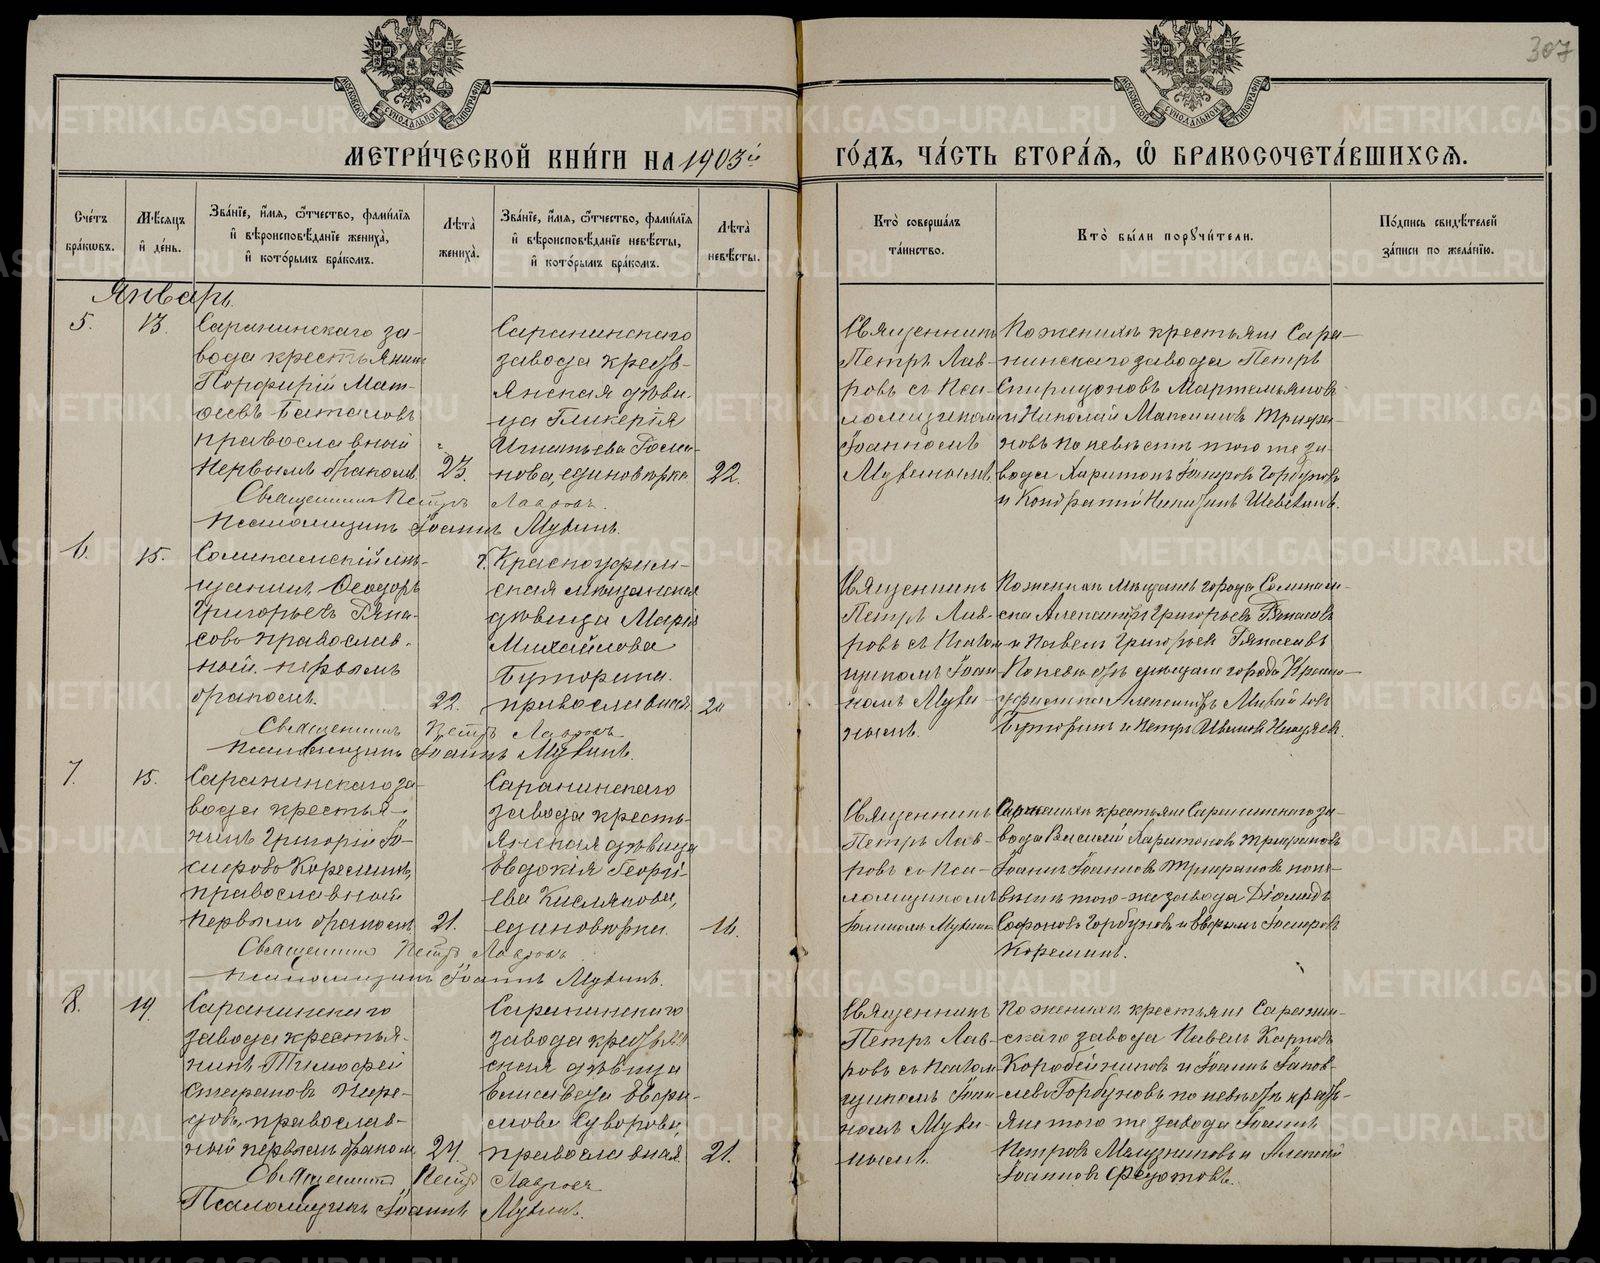 307
МЕТРИ́ЧЕСКОЙ КНИ́ГИ НА 1903й
ГО́ДЪ, ЧА́СТЬ ВТОРА́Я, Ѡ҆ БРАКОСОЧЕТА́ВШИХСЯ.
Сче́тъ бра́кѡвъ.
Мѣ́сяцъ и҆ де́нь.
Зва́нїе, и҆́мя, ѻ҆́тчество, фами́лїя
и҆ вѣроисповѣ́данїе жениха̀,
и҆ кото́рымъ бра́комъ.
Лѣта̀ жениха̀.
Зва́нїе, и҆́мя, ѻ҆́тчество, фами́лїя
и҆ вѣроисповѣ́данїе невѣ́сты,
и҆ кото́рымъ бра́комъ.
Лѣта̀ невѣ́сты.
Кто̀ соверша́лъ та́инство.
Кто̀ бы́ли порꙋчи́тели.
По́дпись свидѣ́телей за́писи по жела́нїю.
Январь.
5.
13.
Саранинскаго за-
вода крестьянин
Порфирій Мат-
ѳеевъ Баталовъ
православный
первымъ бракомъ
23.
Саранинскаго
завода кресть-
янская дѣви-
ца Гликерія
Игнатьева
нова, единовѣрка
22.
Священникъ
Петръ Лав-
ровъ съ Пса-
ломщикомъ
Іоанномъ
Мухинымъ.
По женихѣ крестьяне Сара-
нинскаго завода Петръ
Спиридоновъ Мартемьяновъ
и Николай Максимовъ Трифо-
новъ по невѣстѣ того же за-
вода Харитонъ Горбуновъ
и Кондратій
Священникъ Петръ Лавровъ.
Псаломщикъ Іоаннъ Мухинъ.
6.
15.
Соликамскій мѣ-
щанинъ Ѳеодоръ
Григорьевъ Гяпа-
совъ православ-
ный первымъ
бракомъ.
22.
г. Красноуфим-
ская мѣщанская
дѣвица Марія
Михайлова
Буторина
православная
20
Священникъ
Петръ Лав-
ровъ съ Псалом-
щикомъ Іоан-
номъ Мухи-
нымъ.
По женихѣ мѣщане города Соликам-
ска Александръ Григорьевъ
и Павелъ Григорьевъ Гяпасовъ
По невѣстѣ мѣщане города Красно-
уфимска Александръ Михайловъ
Буторинъ и Петръ Ивановъ
Священникъ Петръ Лавровъ
Псаломщикъ Іоаннъ Мухинъ.
7.
15.
Саранинскаго за-
вода крестья-
нинъ Григорій Іо-
сифовъ Корепинъ,
православный
первымъ бракомъ
21.
Саранинскаго
завода кресть-
янская дѣвица
Евдокія Георгі-
ева Кислякова,
единовѣрка
16.
Священникъ
Петръ Лав-
ровъ съ Пса-
ломщикомъ
Іоанномъ Мухин
крестьяне Саранинскаго за-
вода Василій Харитоновъ Трифановъ
Іоаннъ Іоанновъ Трифановъ по не-
вѣстѣ того-же завода Діомидъ
Софоновъ Горбуновъ и Іосифовъ
Корепинъ.
Священникъ Петръ Лавровъ
Псаломщикъ Іоаннъ Мухинъ.
8.
19.
Саранинскаго
завода крестья-
нинъ Тимофей
Стефановъ
православ-
ный первымъ бракомъ
24.
Саранинскаго
завода крестьян
ская дѣвица
Елисавета Евфи-
мова Суворова,
православная
21.
Священникъ
Петръ Лав-
ровъ съ Псалом-
щикомъ Іоан-
номъ Мухи-
нымъ.
По женихѣ крестьяне Саранин-
скаго завода Павелъ Карповъ
Коробейниковъ и Іоаннъ Іаков-
левъ Горбуновъ по невѣстѣ кресть-
яне того же завода Іоаннъ
Петровъ Мельниковъ и Алексій
Іоанновъ Федотовъ.
Священникъ Петръ Лавровъ
Псаломщикъ Іоаннъ Мухинъ.